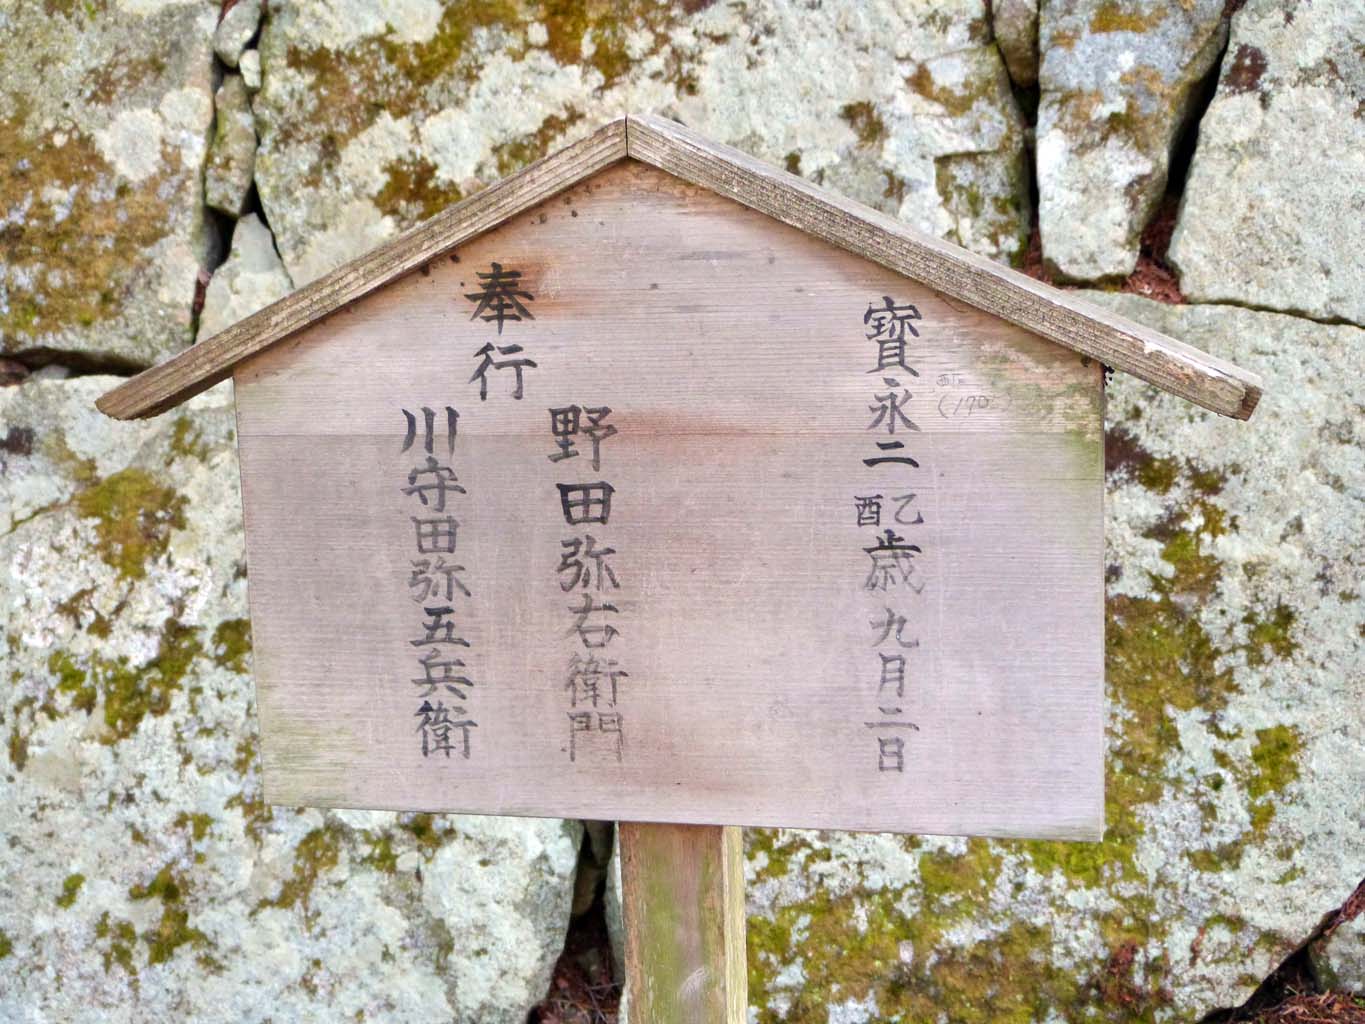 寳永二乙酉歳九月二日
奉行
野田弥右衛門
川守田弥五兵衛